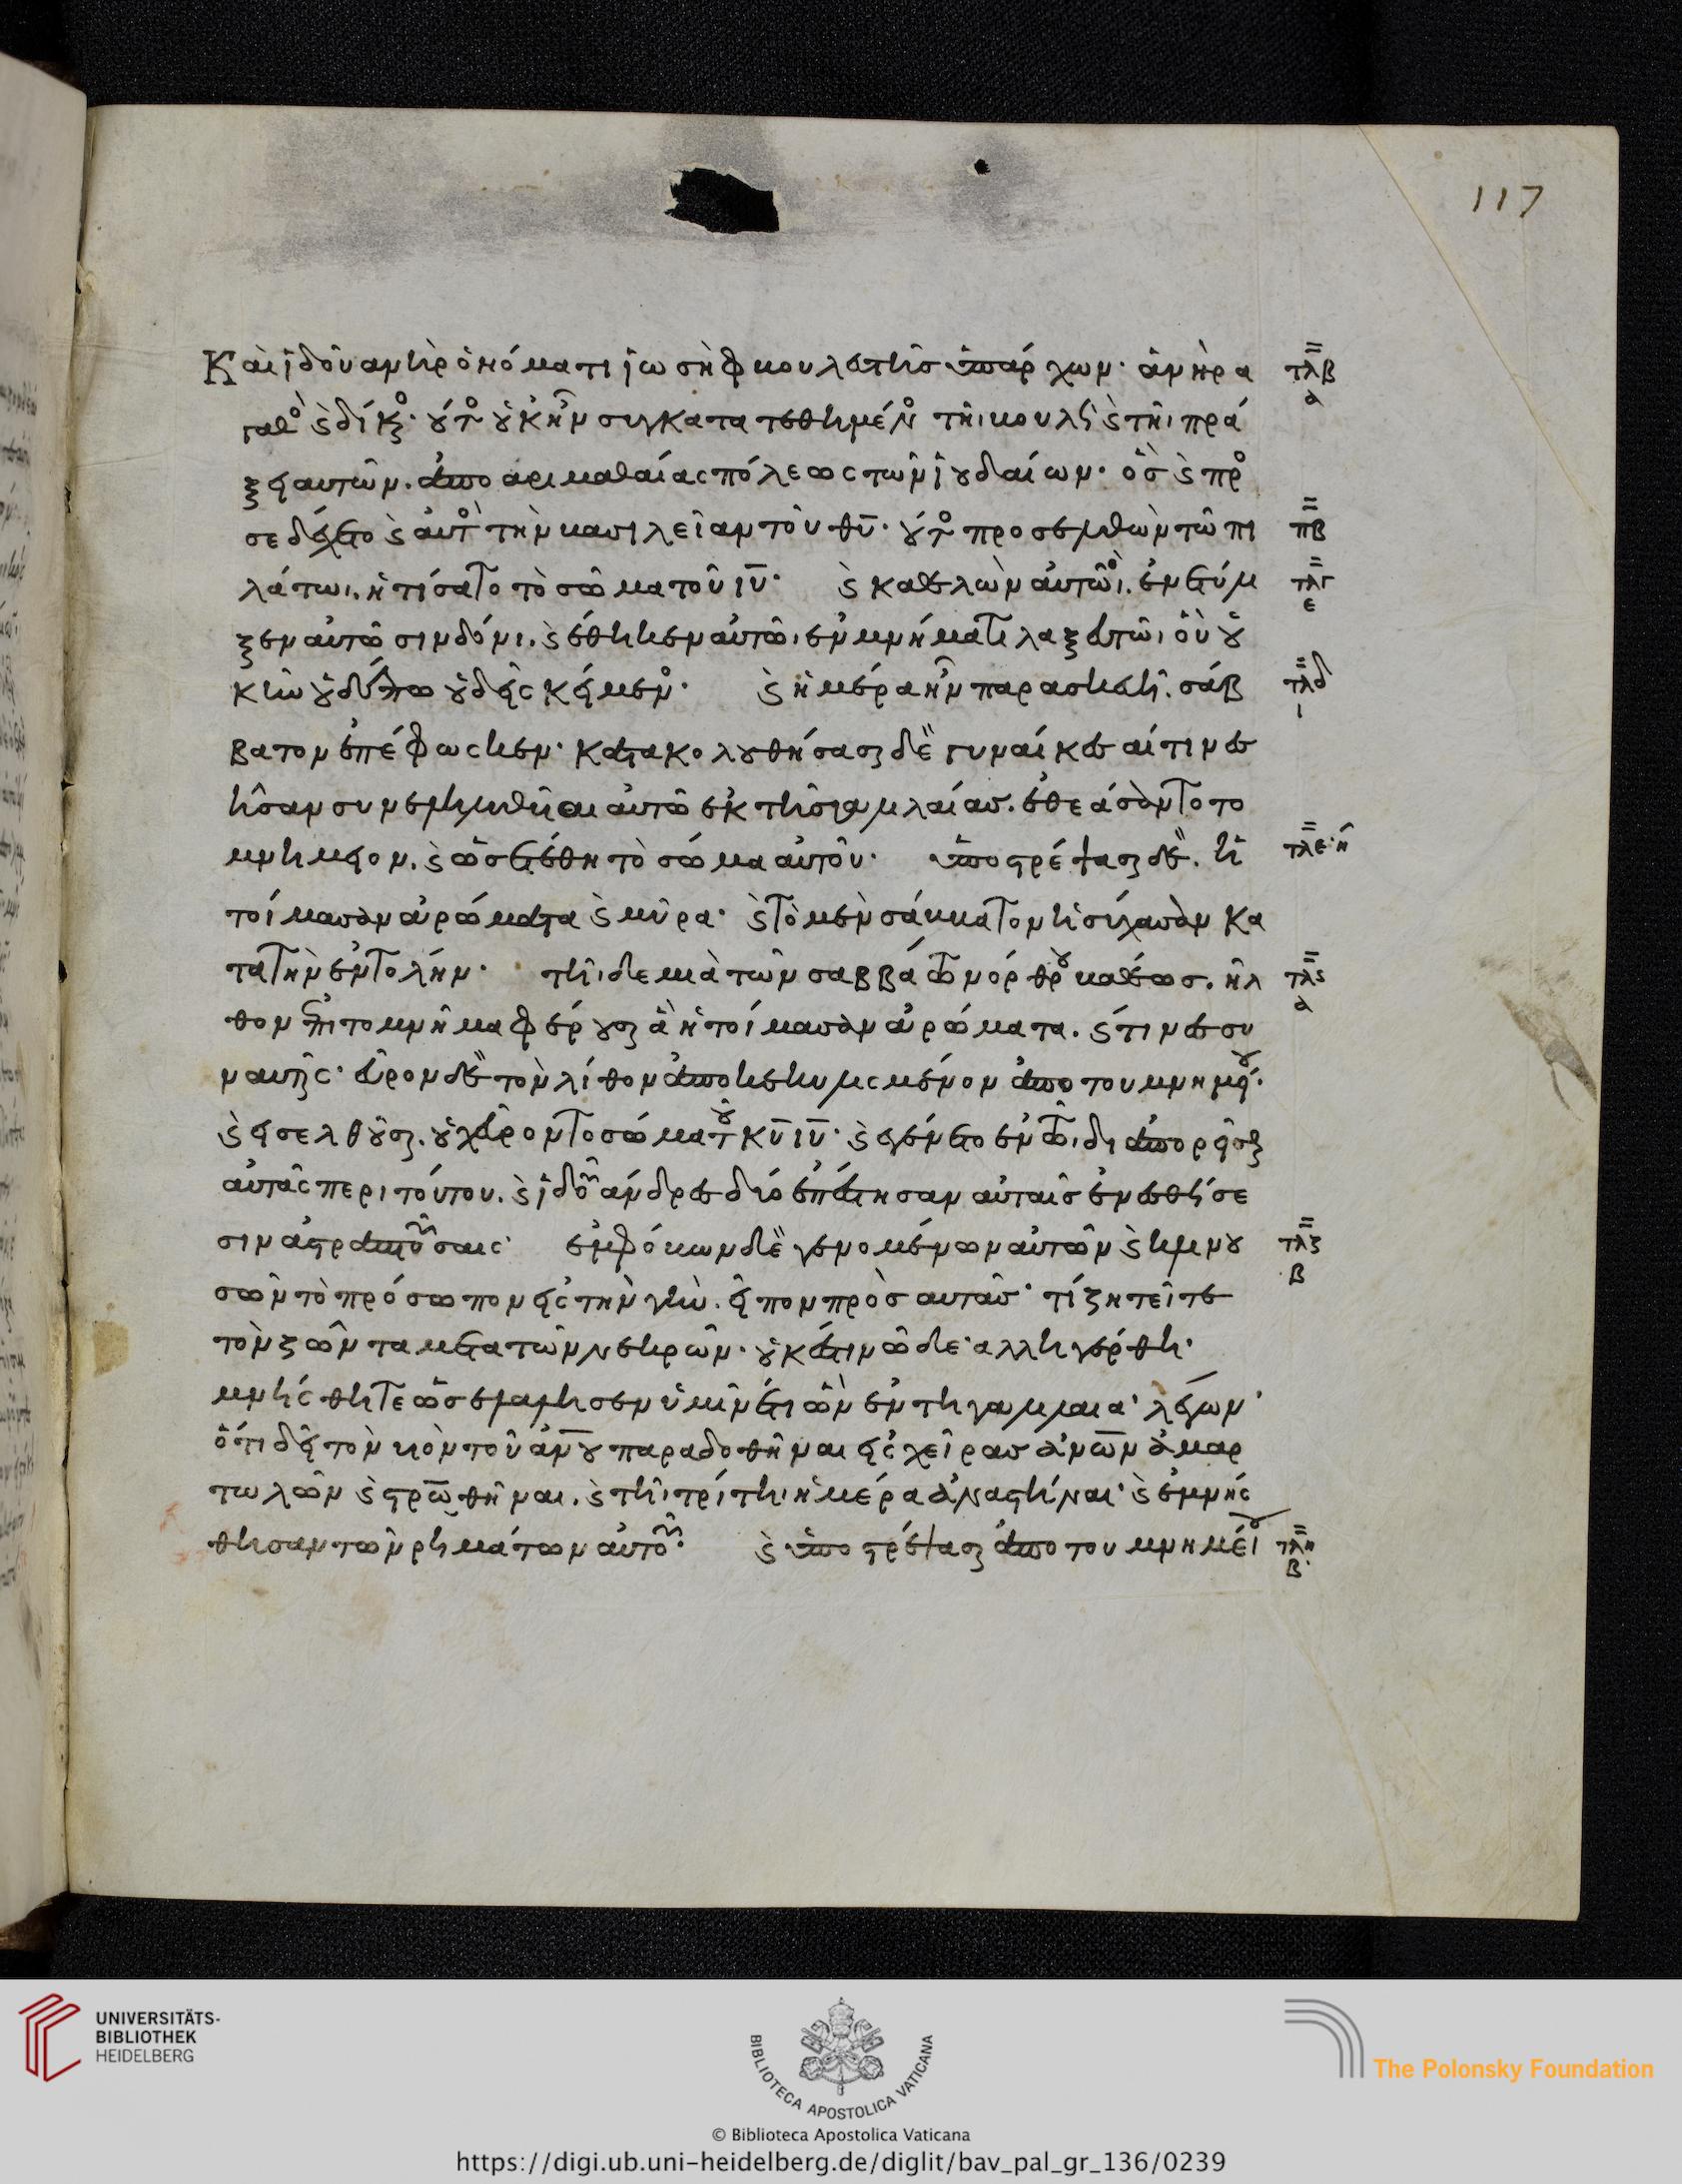 117
Καὶ ἰδοὺ ἀνὴρ ὀνόματι ἰωσὴφ βουλευτὴς ὑπάρχων· ἀνὴρ ἀ τλβ
α
γαθὸς καὶ δίκαιος· οὗτος οὐκ ἦν συγκατατεθημένος τῆι βουλῆ καὶ τῆι πρά
ξει αὐτῶν. ἀπὸ ἀριμαθαίας πόλεως τῶν ἰουδαίων· ὃς καὶ προ
σεδέχετο καὶ αὐτὸς τὴν βασιλείαν τοῦ θυ· οὗτος προσελθὼν τῶ πι πβ
λάτωι. ἠτίσατο τὸ σῶμα τοῦ ιυ· καὶ καθελὼν αὐτῶι. ἐνετύλι τλγ
ε
ξεν αὐτὸ σινδόνι. καὶ ἔθηκεν αὐτὸ. ἐν μνήματι λαξευτῶι οὗ οὐ
κ ἦν οὐδέπω οὐδεὶς κείμενος· καὶ ἡμέρα ἦν παρασκευὴ. σάβ τλδ
ι
βατον ἐπέφωσκεν· κατακολουθήσασαι δὲ γυναίκες αἵτινες
ἦσαν συνεληλυθῆαι αὐτῶ ἐκ τῆς γαλιλαίας. ἐθεάσαντο το
μνημεῖον. καὶ ὡς ἐτέθη τὸ σῶμα αὐτοῦ· ὑποστρέψασαι δὲ. ἡ τλε·η
τοίμασαν ἀρώματα καὶ μύρα· καὶ τὸ μὲν σάββατον ἡσύχασαν κα
τα τὴν ἐντολήν· τῆι δε μιὰ τῶν σαββάτων ὄρθρου βαθέως. ἦλ τλς
α
θον ἐπι το μνῆμα φέρουσαι ἃ ἡτοίμασαν ἀρώματα. καί τινες συ
ν αυταῖς· εὗρον δὲ τὸν λίθον ἀποκεκυλισμένον ἀπο του μνημείου·
καὶ εἰσελθοῦσαι. οὐχ εὗρον το σῶμα τοῦ κυ ιυ· καὶ ἐγένετο ἐν τῶι διαπορεῖσθαι
αὐτὰς περι τούτου. καὶ ἰδοὺ ἄνδρες δύο ἐπέστησαν αὐταῖς ἐν ἐσθήσε
σιν ἀστραπτούσαις· ἐμφόβων δὲ γενομένων αὐτῶν καὶ κλινου τλζ
β
σῶν τὸ πρόσωπον εἰς τὴν γῆν. εἶπον πρὸς αυτάς· τί ζητεῖτε
τὸν ζῶντα μετα τῶν νεκρῶν· οὐκ ἔστιν ὧδε· αλλ ηγέρθη·
μνήσθητε ὡς ἐλάλησεν ὑμῖν ἔτι ὢν ἐν τη γαλιλαια· λέγων·
ὅτι δεῖ τὸν υἱὸν τοῦ ανου παραδοθῆναι εἰς χεῖρας ανων ἁμαρ
τωλῶν καὶ στρωθῆναι. καὶ τῆι τρίτη ἡμέρα ἀναστῆναι· καὶ ἐμνής
θησαν τῶν ρημάτων αὐτοῦ· καὶ ὑποστρέψασαι ἀπο του μνημείου τλη
β
UNIVERSITÄTS-
BIBLIOTHEK
HEIDELBERG
BIBLIOTECA APOSTOLICA VATICANA
The Polonsky Foundation
© Biblioteca Apostolica Vaticana
https://digi.ub.uni-heidelberg.de/diglit/bav_pal_gr_136/0239